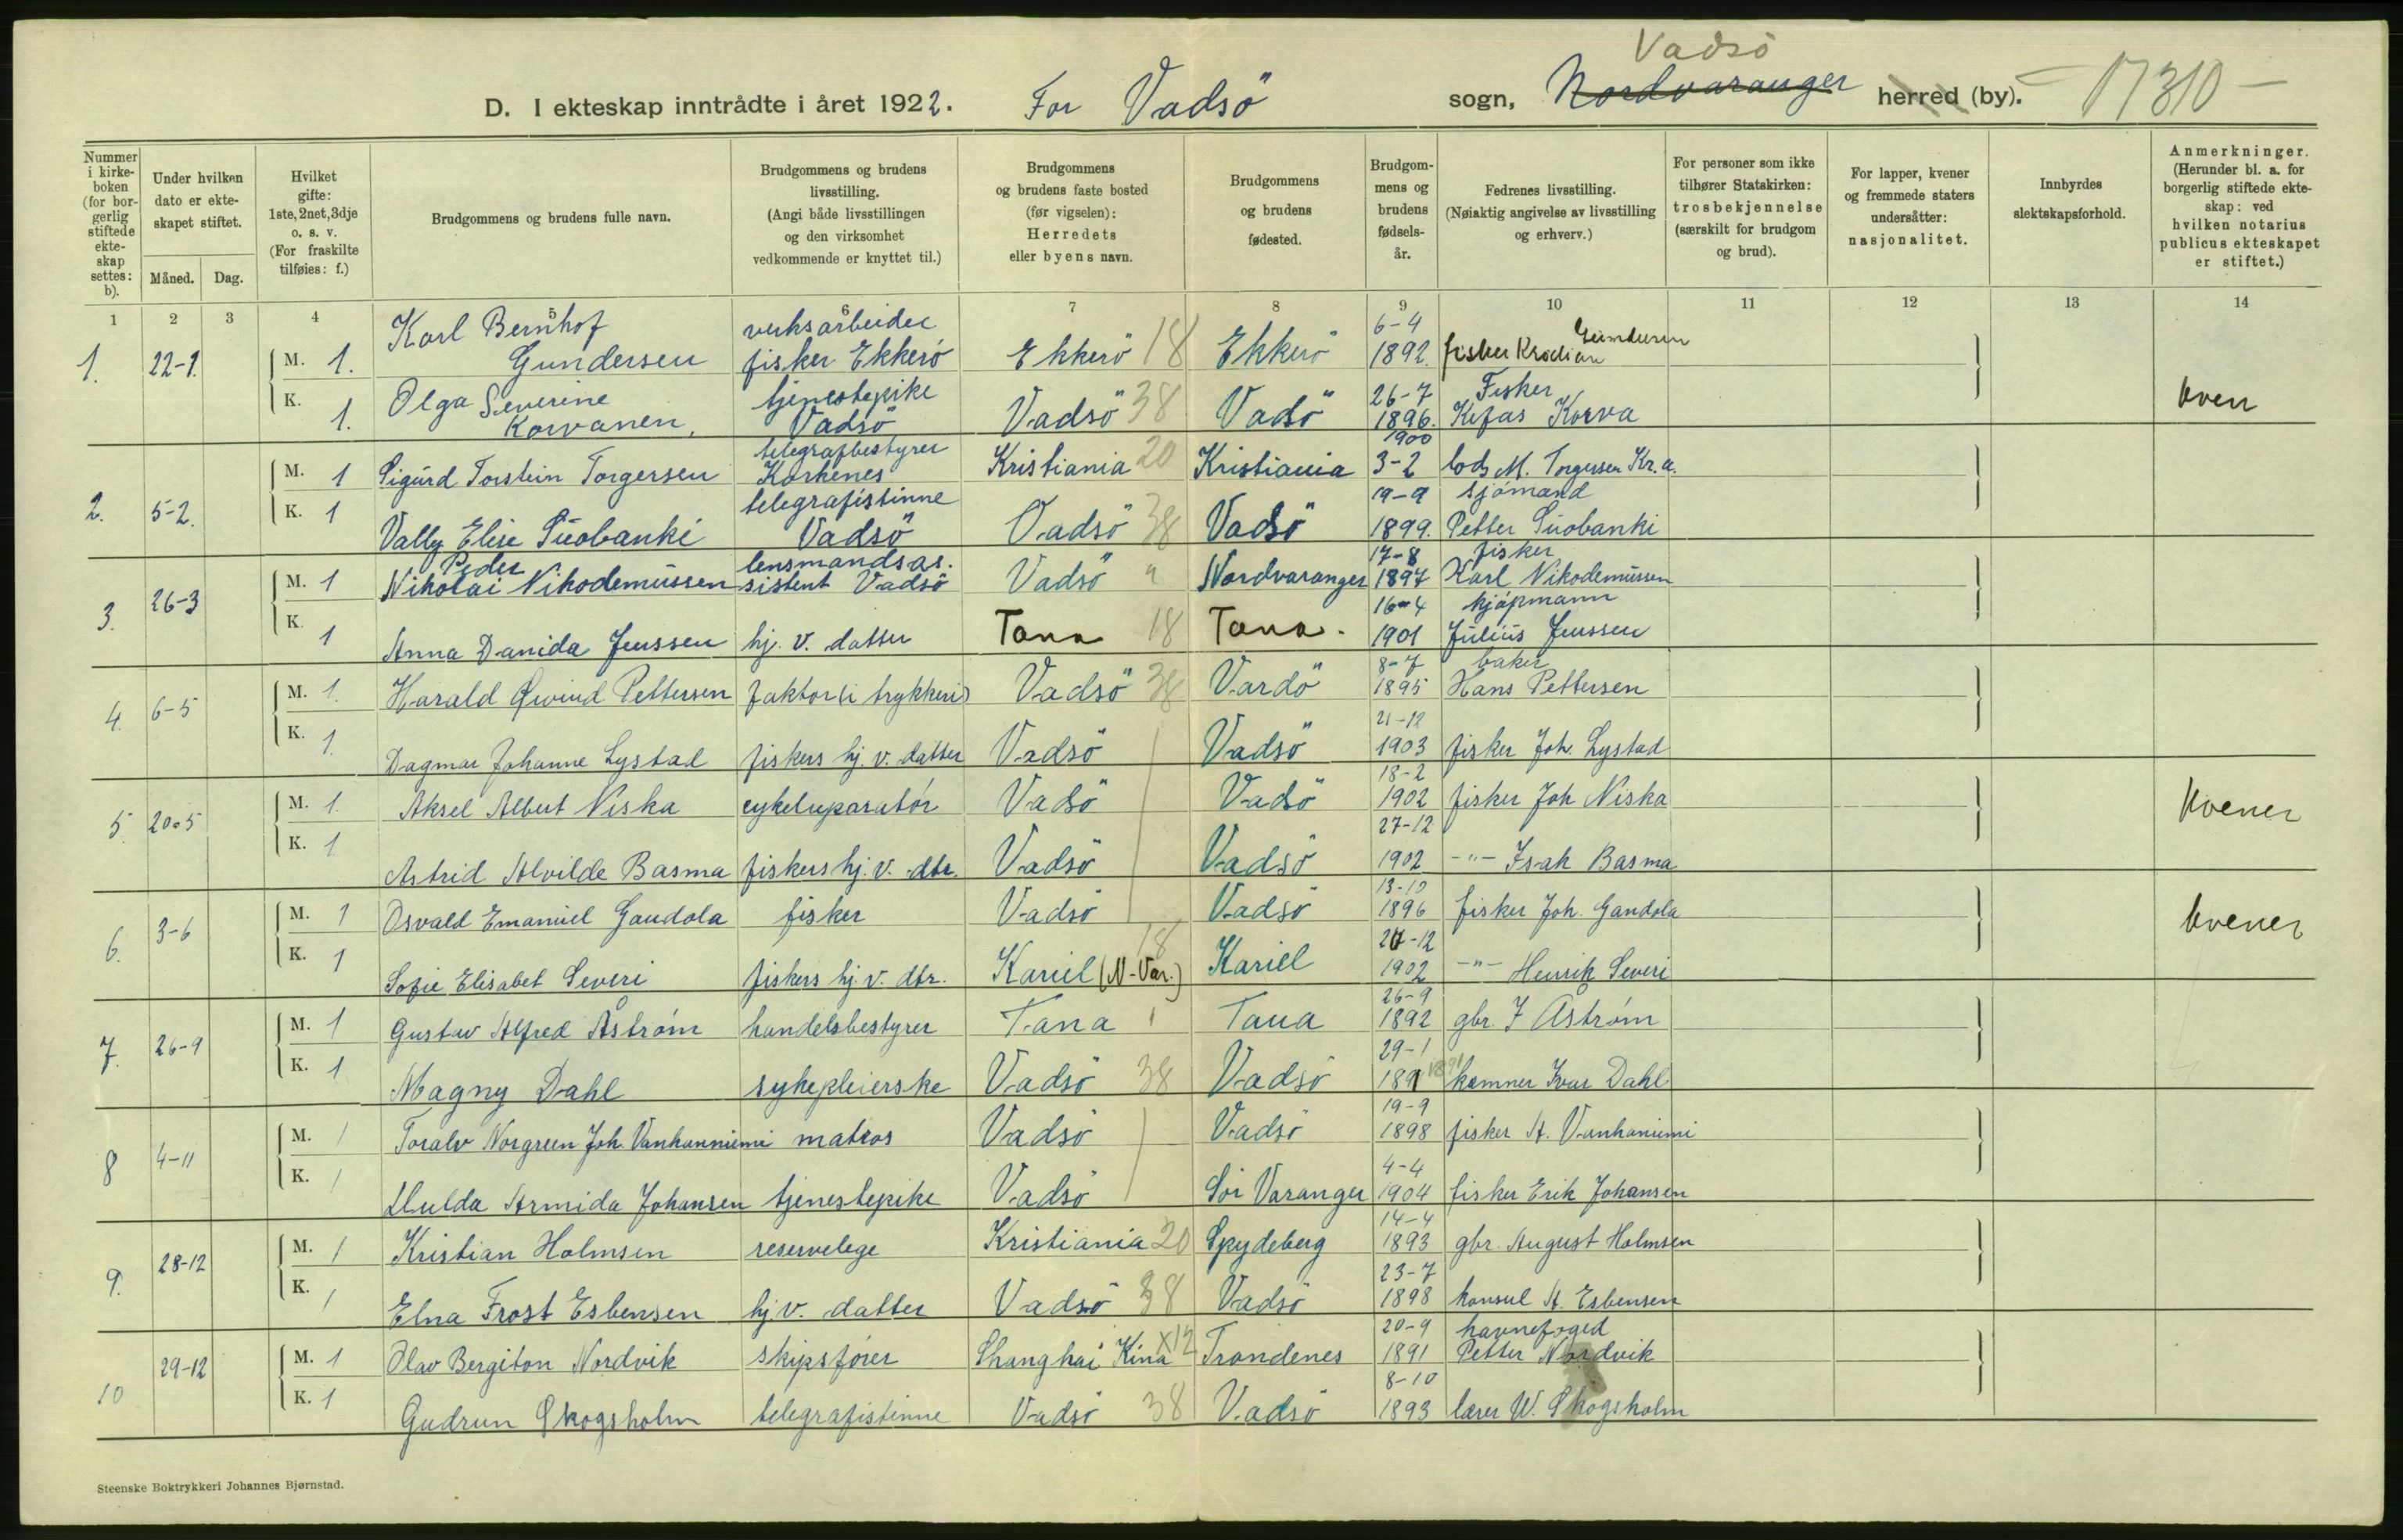 Vadsö
D. I ekteskap inntrådte i året 1922. For Vadsö sogn, Nordvaranger herred (by). - 17310 -
Nummer i kirkeboken (for borgerlig stiftede ekteskap settes: b).
Under hvilken dato er ekteskapet stiftet.
Måned. Dag.
Hvilket gifte: 1ste, 2net, 3dje o. s. v. (For fraskilte tilføies: f.)
Brudgommens og brudens fulle navn.
Brudgommens og brudens livsstilling. (Angi både livsstillingen og den virksomhet vedkommende er knyttet til.)
Brudgommens og brudens faste bosted (før vigselen): Herredets eller byens navn.
Brudgommens og brudens fødested.
Brudgommens og brudens fødselsår.
Fedrenes livsstilling. (Nøiaktig angivelse av livsstilling og erhverv.)
For personer som ikke tilhører Statskirken: trosbekjennelse (særskilt for brudgom og brud).
For lapper, kvener og fremmede staters undersåtter: nasjonalitet.
Innbyrdes slektskapsforhold.
Anmerkninger. (Herunder bl. a. for borgerlig stiftede ekteskap: ved hvilken notarius publicus ekteskapet er stiftet.)
1 2 3 4 5 6 7 8 9 10 11 12 13 14
1. 22-1. M. 1. Karl Bernhof Gundersen verksarbeider fisker Ekkerö Ekkerö 18 Ekkerö 6-4 1892. fisker Gundersen
K. 1. Olga Severine Korvanen, tjenestepike Vadsö Vadsö 38 Vadsö 26-7 1896. Fisker Kefas Korva kven
2. 5-2. M. 1 Sigurd Torstein Torgersen telegrafbestyrer Kirkenes Kristiania 20 Kristiania 1900 3-2 lods M. Torgersen Kr.a.
K. 1 Vally Elise Suobanki telegrafistinne Vadsö Vadsö 38 Vadsö 19-9 1899. sjömand Petter Suobanki
3. 26-3 M. 1 Peder Nikolai Nikodemussen lensmandsassistent Vadsö Vadsö " Nordvaranger 17-8 1897 fisker Karl Nikodemussen
K. 1 Anna Danida Jenssen hj. v. datter Tana 18 Tana. 16-4 1901 kjöpmann Julius Jenssen
4. 6-5 M. 1. Harald Øivind Pettersen faktor (i trykkeri) Vadsö 38 Vardö 8-7 1895 baker Hans Pettersen
K. 1. Dagmar Johanne Lystad fiskers hj. v. datter Vadsö Vadsö 21-12 1903 fisker Joh. Lystad
5. 20-5 M. 1. Aksel Albert Niska cykelreparatör Vadsö Vadsö 18-2 1902 fisker Joh Niska kvener
K. 1. Astrid Alvilde Basma fiskers hj. v. dtr. Vadsö Vadsö 27-12 1902 -"- Isak Basma
6. 3-6 M. 1 Osvald Emanuel Gandola fisker Vadsö Vadsö 13-10 1896 fisker Joh. Gandola kvener
K. 1 Sofie Elisabet Severi fiskers hj. v. dtr. Kariel (N-Var.) 18 Kariel 27-12 1902 -"- Henrik Severi
7. 26-9 M. 1 Gustav Alfred Åström handelsbestyrer Tana Tana 26-9 1892 gbr. J Åström
K. 1 Magny Dahl sykepleierske Vadsö 38 Vadsö 29-1 1891 1891 kemner Ivar Dahl
8 4-11 M. 1 Toralv Norgreen Joh. Vanhanniemi matros Vadsö Vadsö 19-9 1898 fisker A. Vanhaniemi
K. 1 Hulda Armida Johansen tjenestepike Vadsö Sör Varanger 4-4 1904 fisker Erik Johansen
9. 28-12 M. 1 Kristian Holmsen reservelege Kristiania 20 Spydeberg 14-4 1893 gbr. August Holmsen
K. 1 Elna Frost Esbensen hj. v. datter Vadsö 38 Vadsö 23-7 1898 konsul A. Esbensen
10 29-12 M. 1 Olav Bergiton Nordvik skipsförer Shanghai Kina X12 Trondenes 20-9 1891 havnefoged Petter Nordvik
K. 1 Gudrun Skogsholm telegrafistinne Vadsö 38 Vadsö 8-10 1893 lærer W. Skogsholm
Steenske Boktrykkeri Johannes Bjørnstad.